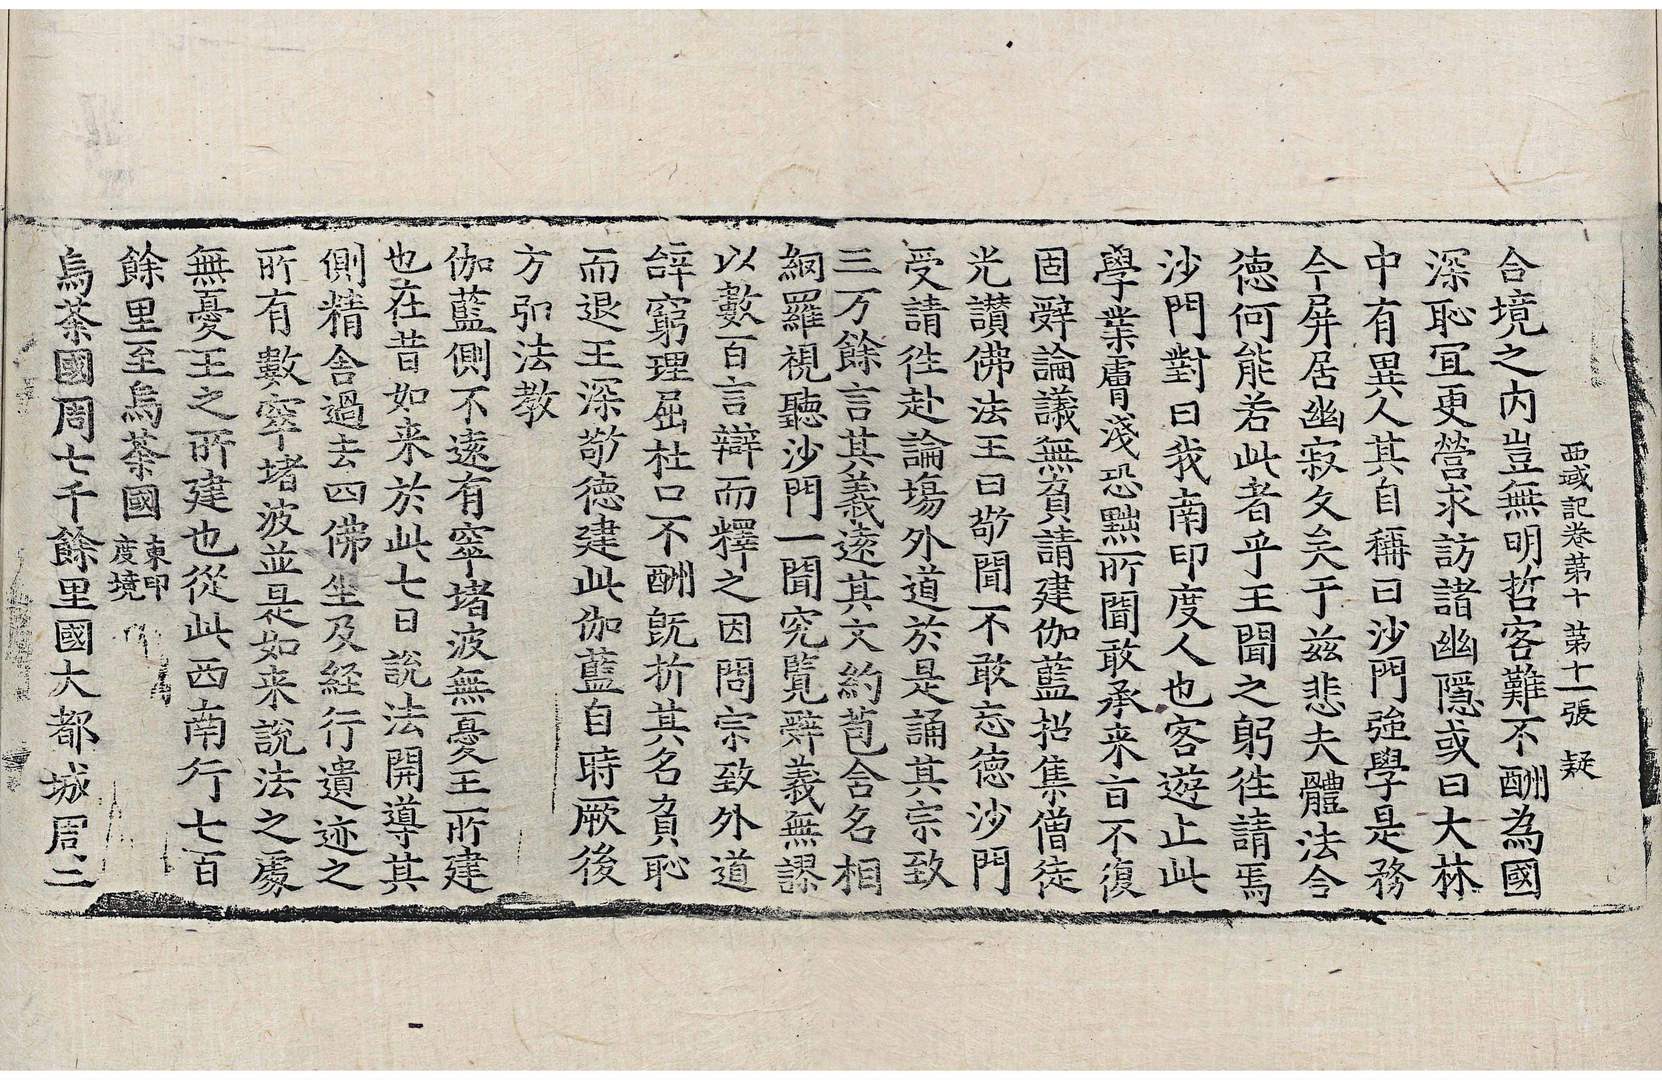 西域記卷第十 第十一張 疑
合境之內豈無明哲客難不酬為國
深恥冝更營求訪諸幽隱或曰大林
中有異人其自稱曰沙門強學是務
今屏居幽寂久矣于兹悲夫體法合
德何能若此者乎王聞之躬徃請焉
沙門對曰我南印度人也客遊止此
學業膚淺恐黜所聞敢承来旨不復
固辭論議無負請建伽藍招集僧徒
光讃佛法王曰敬聞不敢忘德沙門
受請徃赴論場外道於是誦其宗致
三万餘言其義遠其文約苞含名相
網羅視聽沙門一聞究覽辭義無謬
以數百言辯而釋之因問宗致外道
辝窮理屈杜口不酬旣折其名負恥
而退王深敬德建此伽藍自時厥後
方弘法教
伽藍側不遠有窣堵波無憂王所建
也在昔如来於此七日說法開導其
側精舍過去四佛坐及経行遺迹之
所有數窣堵波並是如来說法之處
無憂王之所建也從此西南行七百
餘里至烏荼國東印度境
烏荼國周七千餘里國大都城周二